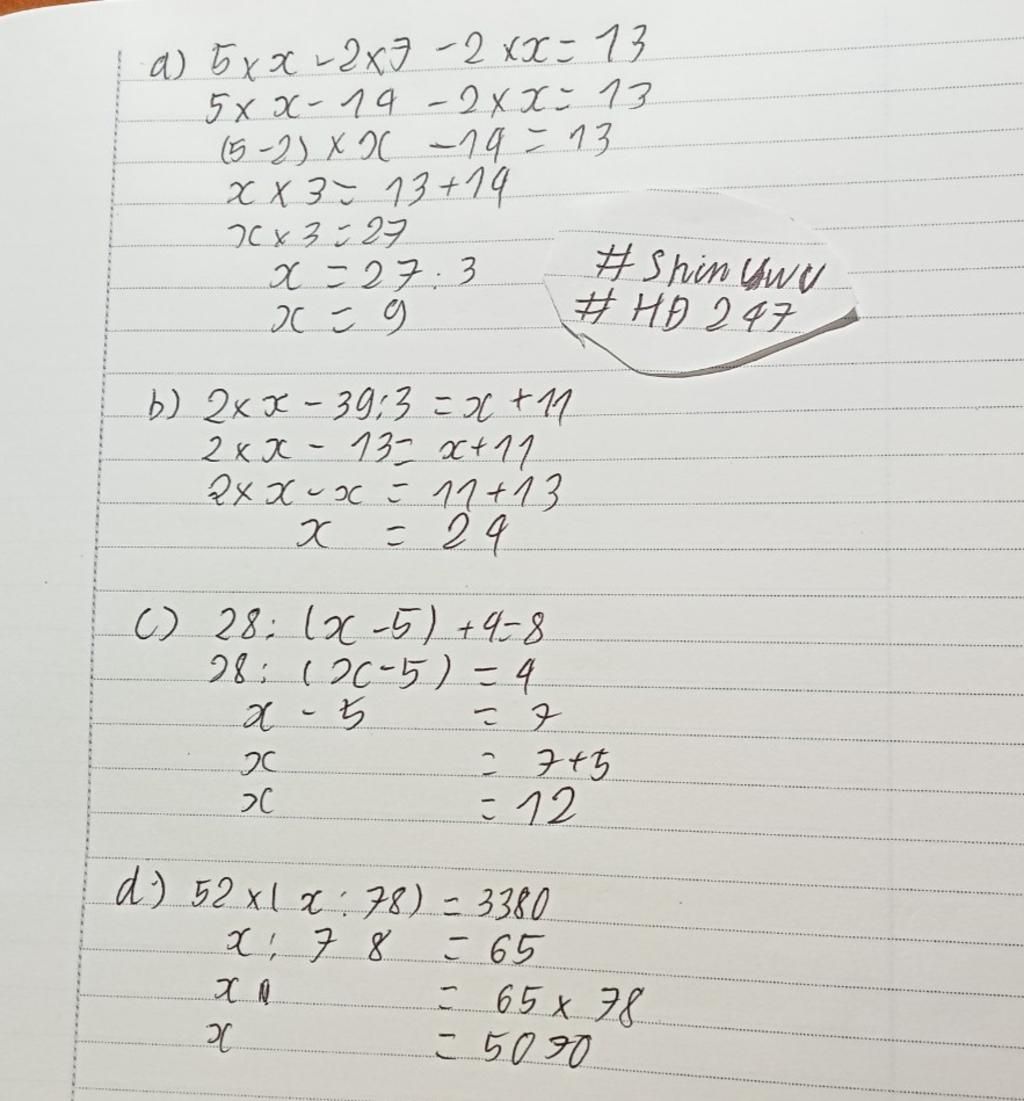 a) 5 × x - 2 × 7 - 2 × x = 13
5 × x - 14 - 2 × x = 13
(5 - 2) × x - 14 = 13
x × 3 = 13 + 14
x × 3 = 27
x = 27 : 3
x = 9
# Shin UwU
# HĐ 247
b) 2 × x - 39 : 3 = x + 11
2 × x - 13 = x + 11
2 × x - x = 11 + 13
x = 24
c) 28 : (x - 5) + 4 = 8
28 : (x - 5) = 4
x - 5 = 7
x = 7 + 5
x = 12
d) 52 × (x : 78) = 3380
x : 78 = 65
x = 65 × 78
x = 5070